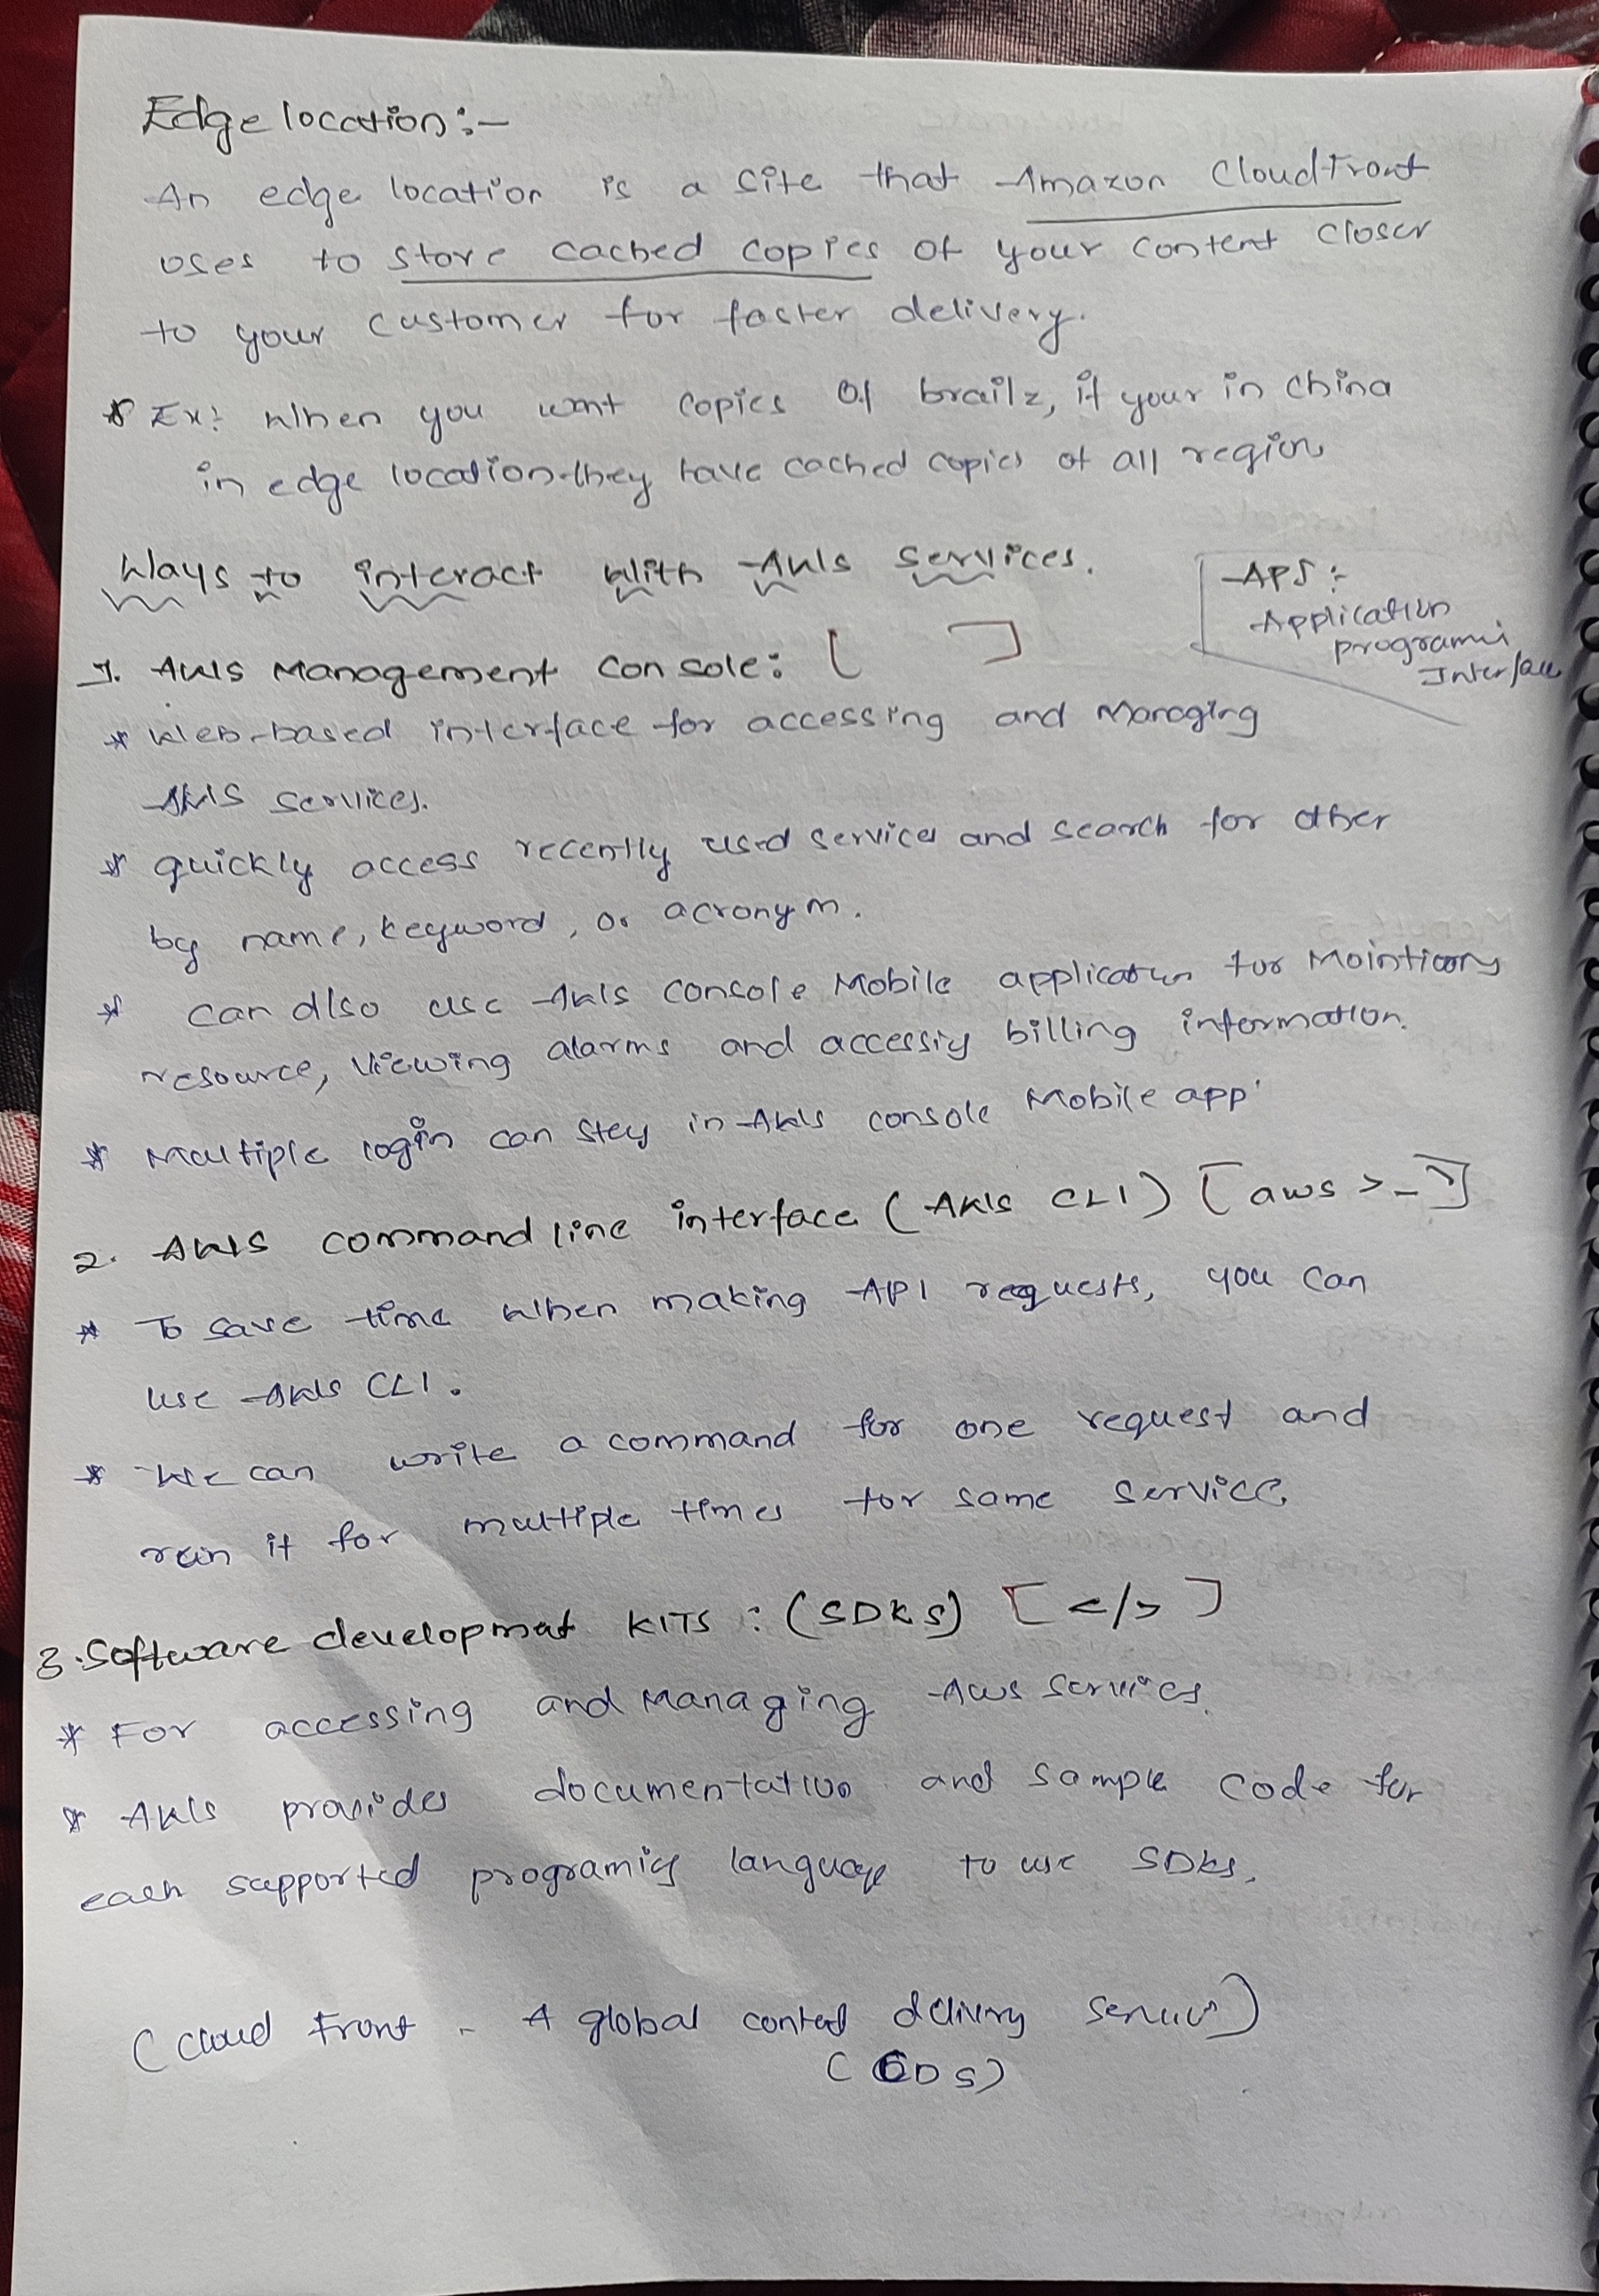 Edge location :-
An edge location is a site that Amazon Cloudfront
uses to store cached copies of your content closer
to your customer for faster delivery.
* Ex: When you want copies of brailz, if your in china
in edge location they have cached copies of all region
Ways to interact with AWS services.
API :
Application
programi
Interface
1. AWS Management Console: [ ]
* Web-based interface for accessing and Managing
AWS services.
* quickly access recently used services and search for other
by name, keyword, or acronym.
* can also use AWS console Mobile application for Mointiorng
resource, viewing alarms and accessig billing information.
* Multiple login can stey in AWS console Mobile app'
2. AWS command line interface (AWS CLI) [aws >_]
* To save time when making API requests, you can
use AWS CLI.
* We can write a command for one request and
run it for multiple times for same service.
3. Software developmat KITS : (SDKS) [</>]
* For accessing and Managing Aws services.
* AWS provides documentation and sample code for
each supported programig language to use SDKs.
(Cloud Front - A global contend delivery service)
(CDS)